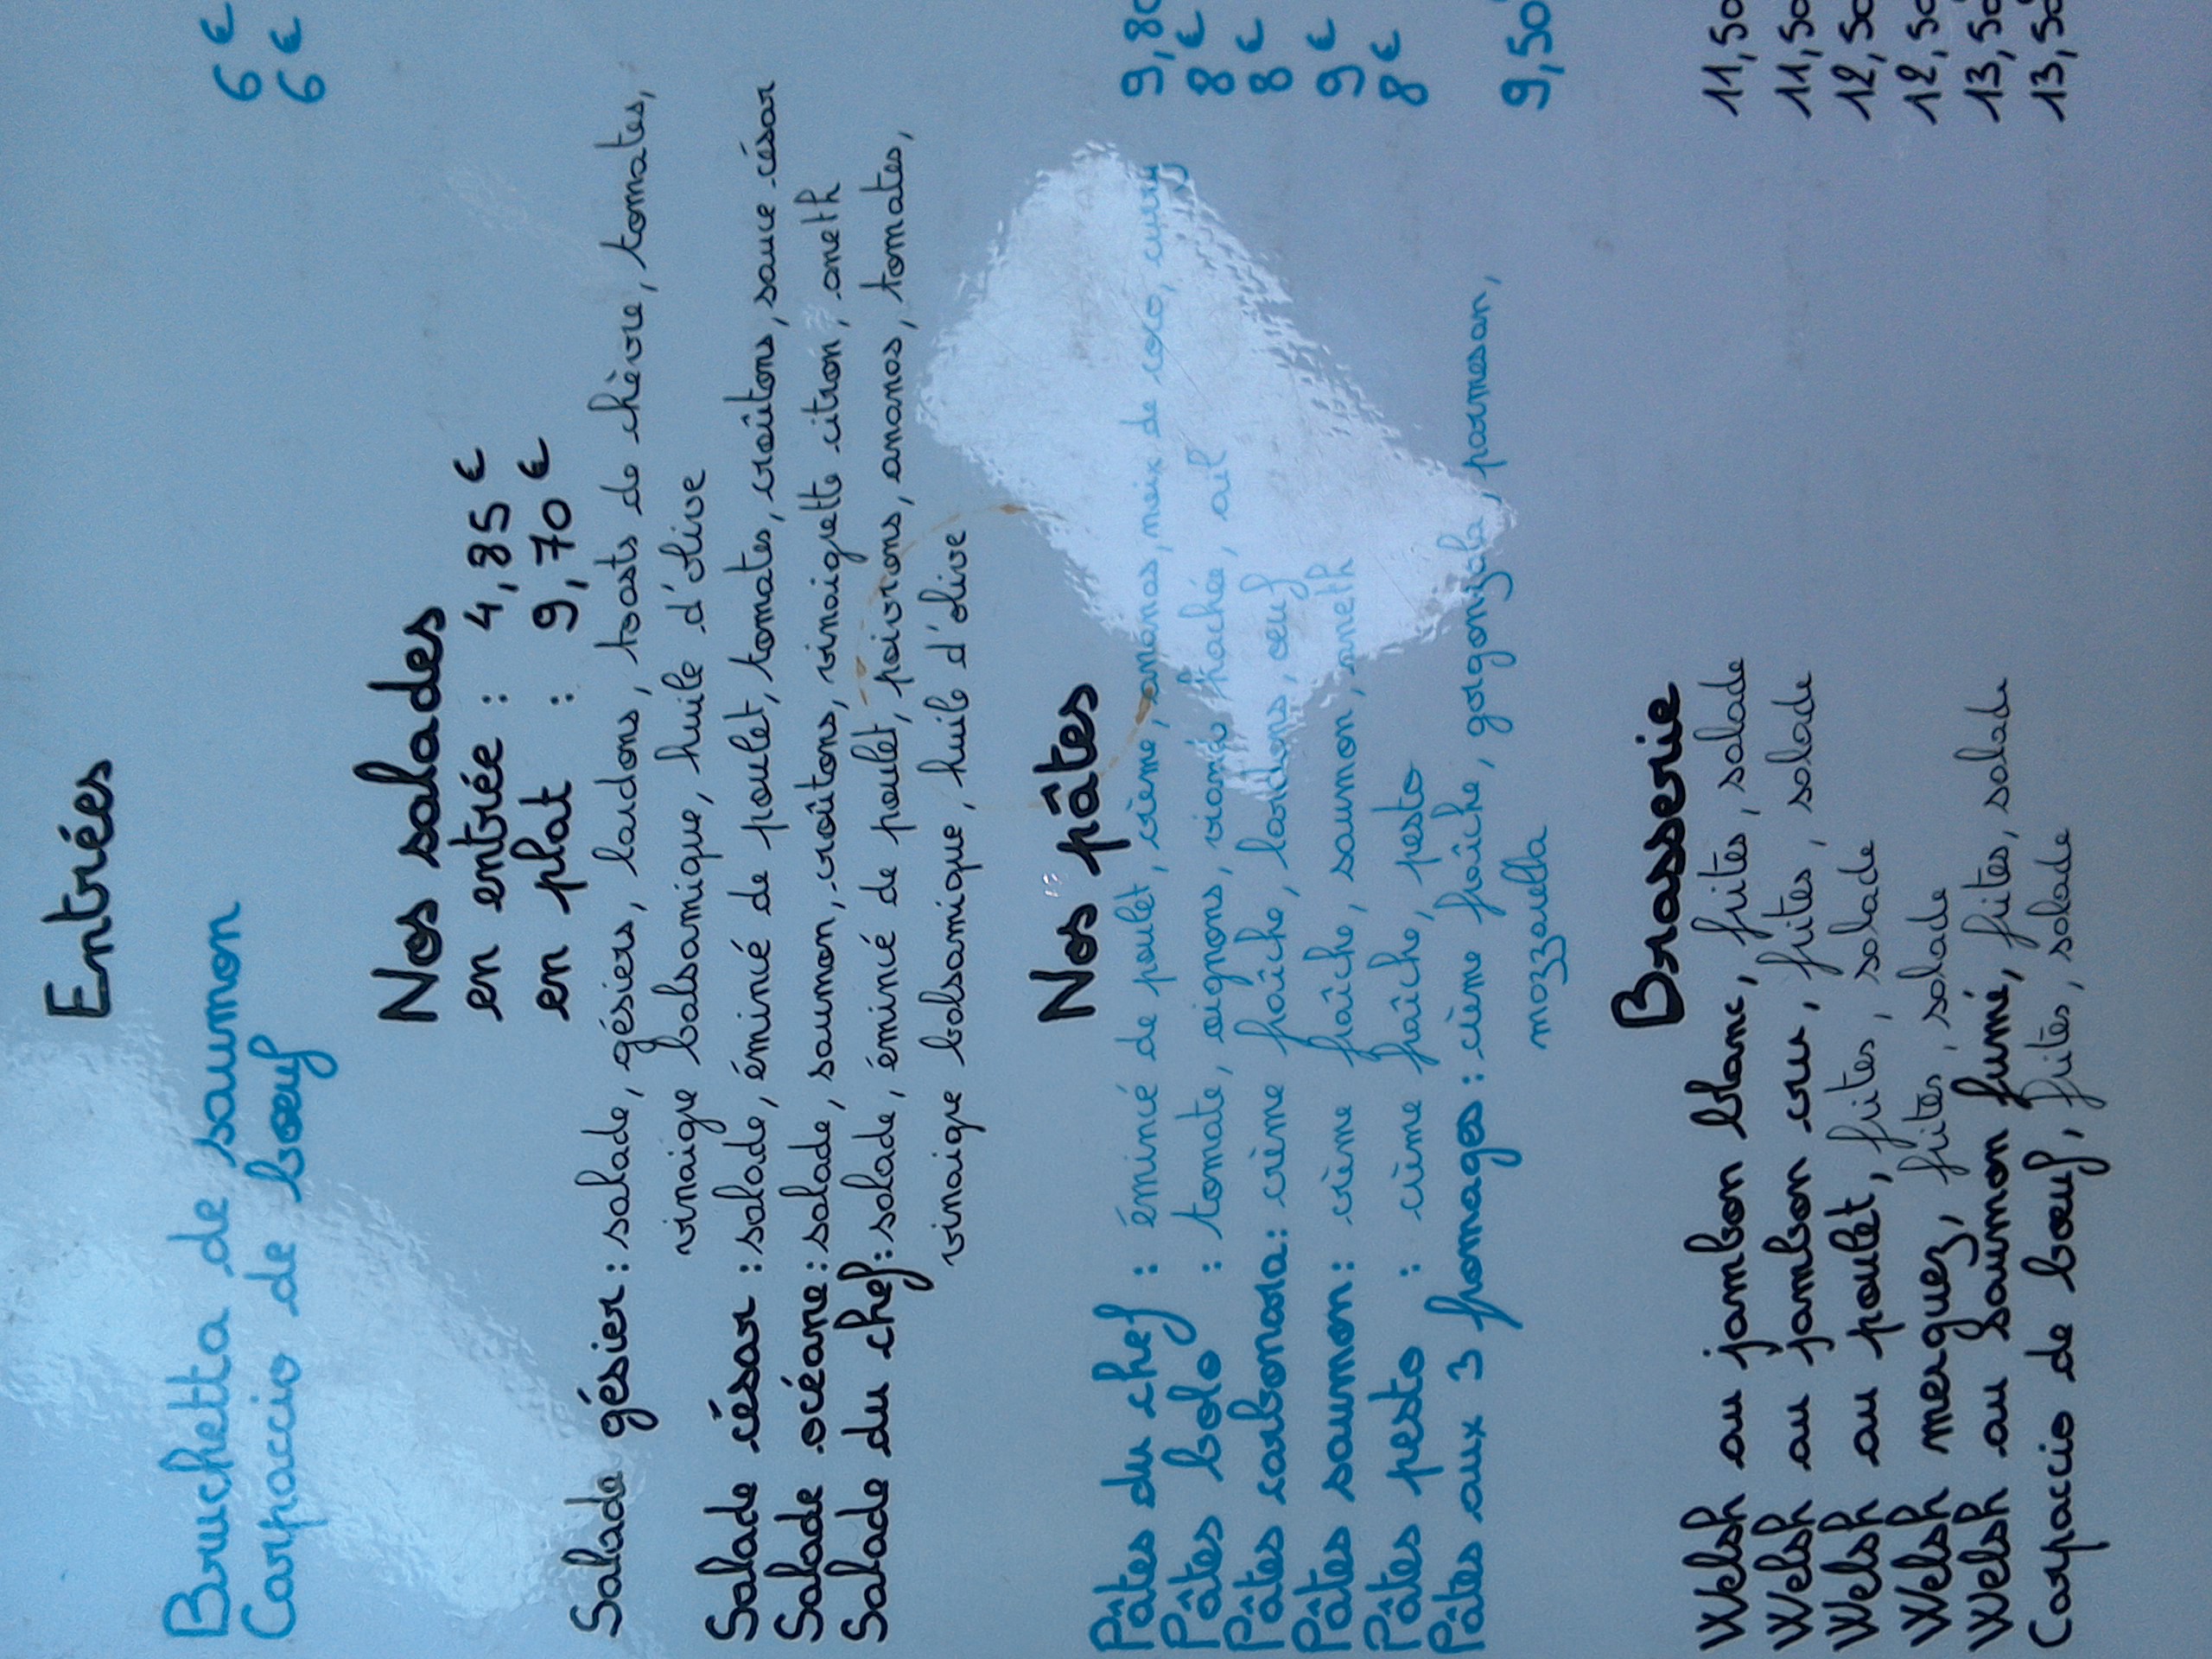 Entrées
Bruchetta de saumon 6 €
Carpaccio de boeuf 6 €
Nos salades
en entrée : 4,85 €
en plat : 9,70 €
Salade gésier : salade, gésiers, lardons, toasts de chèvre, tomates,
vinaigre balsamique, huile d'olive
Salade césar : salade, émincé de poulet, tomates, croûtons, sauce césar
Salade océane : salade, saumon, croûtons, vinaigrette citron, aneth
Salade du chef : salade, émincé de poulet, poivrons, ananas, tomates,
vinaigre balsamique, huile d'olive
Nos pâtes
Pâtes du chef : émincé de poulet, crème, ananas, noix de coco, curry 9,80
Pâtes bolo : tomate, oignons, viande hachée, ail 8 €
Pâtes carbonara : crème fraîche, lardons, oeuf 8 €
Pâtes saumon : crème fraîche, saumon, aneth 9 €
Pâtes pesto : crème fraîche, pesto 8 €
Pâtes aux 3 fromages : crème fraîche, gorgonzola, parmesan, 9,50
mozzarella
Brasserie
Welsh au jambon blanc, frites, salade 11,50
Welsh au jambon cru, frites, salade 11,50
Welsh au poulet, frites, salade 12,50
Welsh merguez, frites, salade 12,50
Welsh au saumon fumé, frites, salade 13,50
Carpaccio de boeuf, frites, salade 13,50